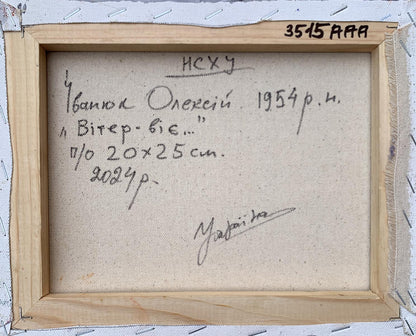 3515AAA
НСХУ
Іванюк Олексій. 1954 р.н.
„Вітер-віє..."
п/о 20х25 см.
2024 р.
Україна